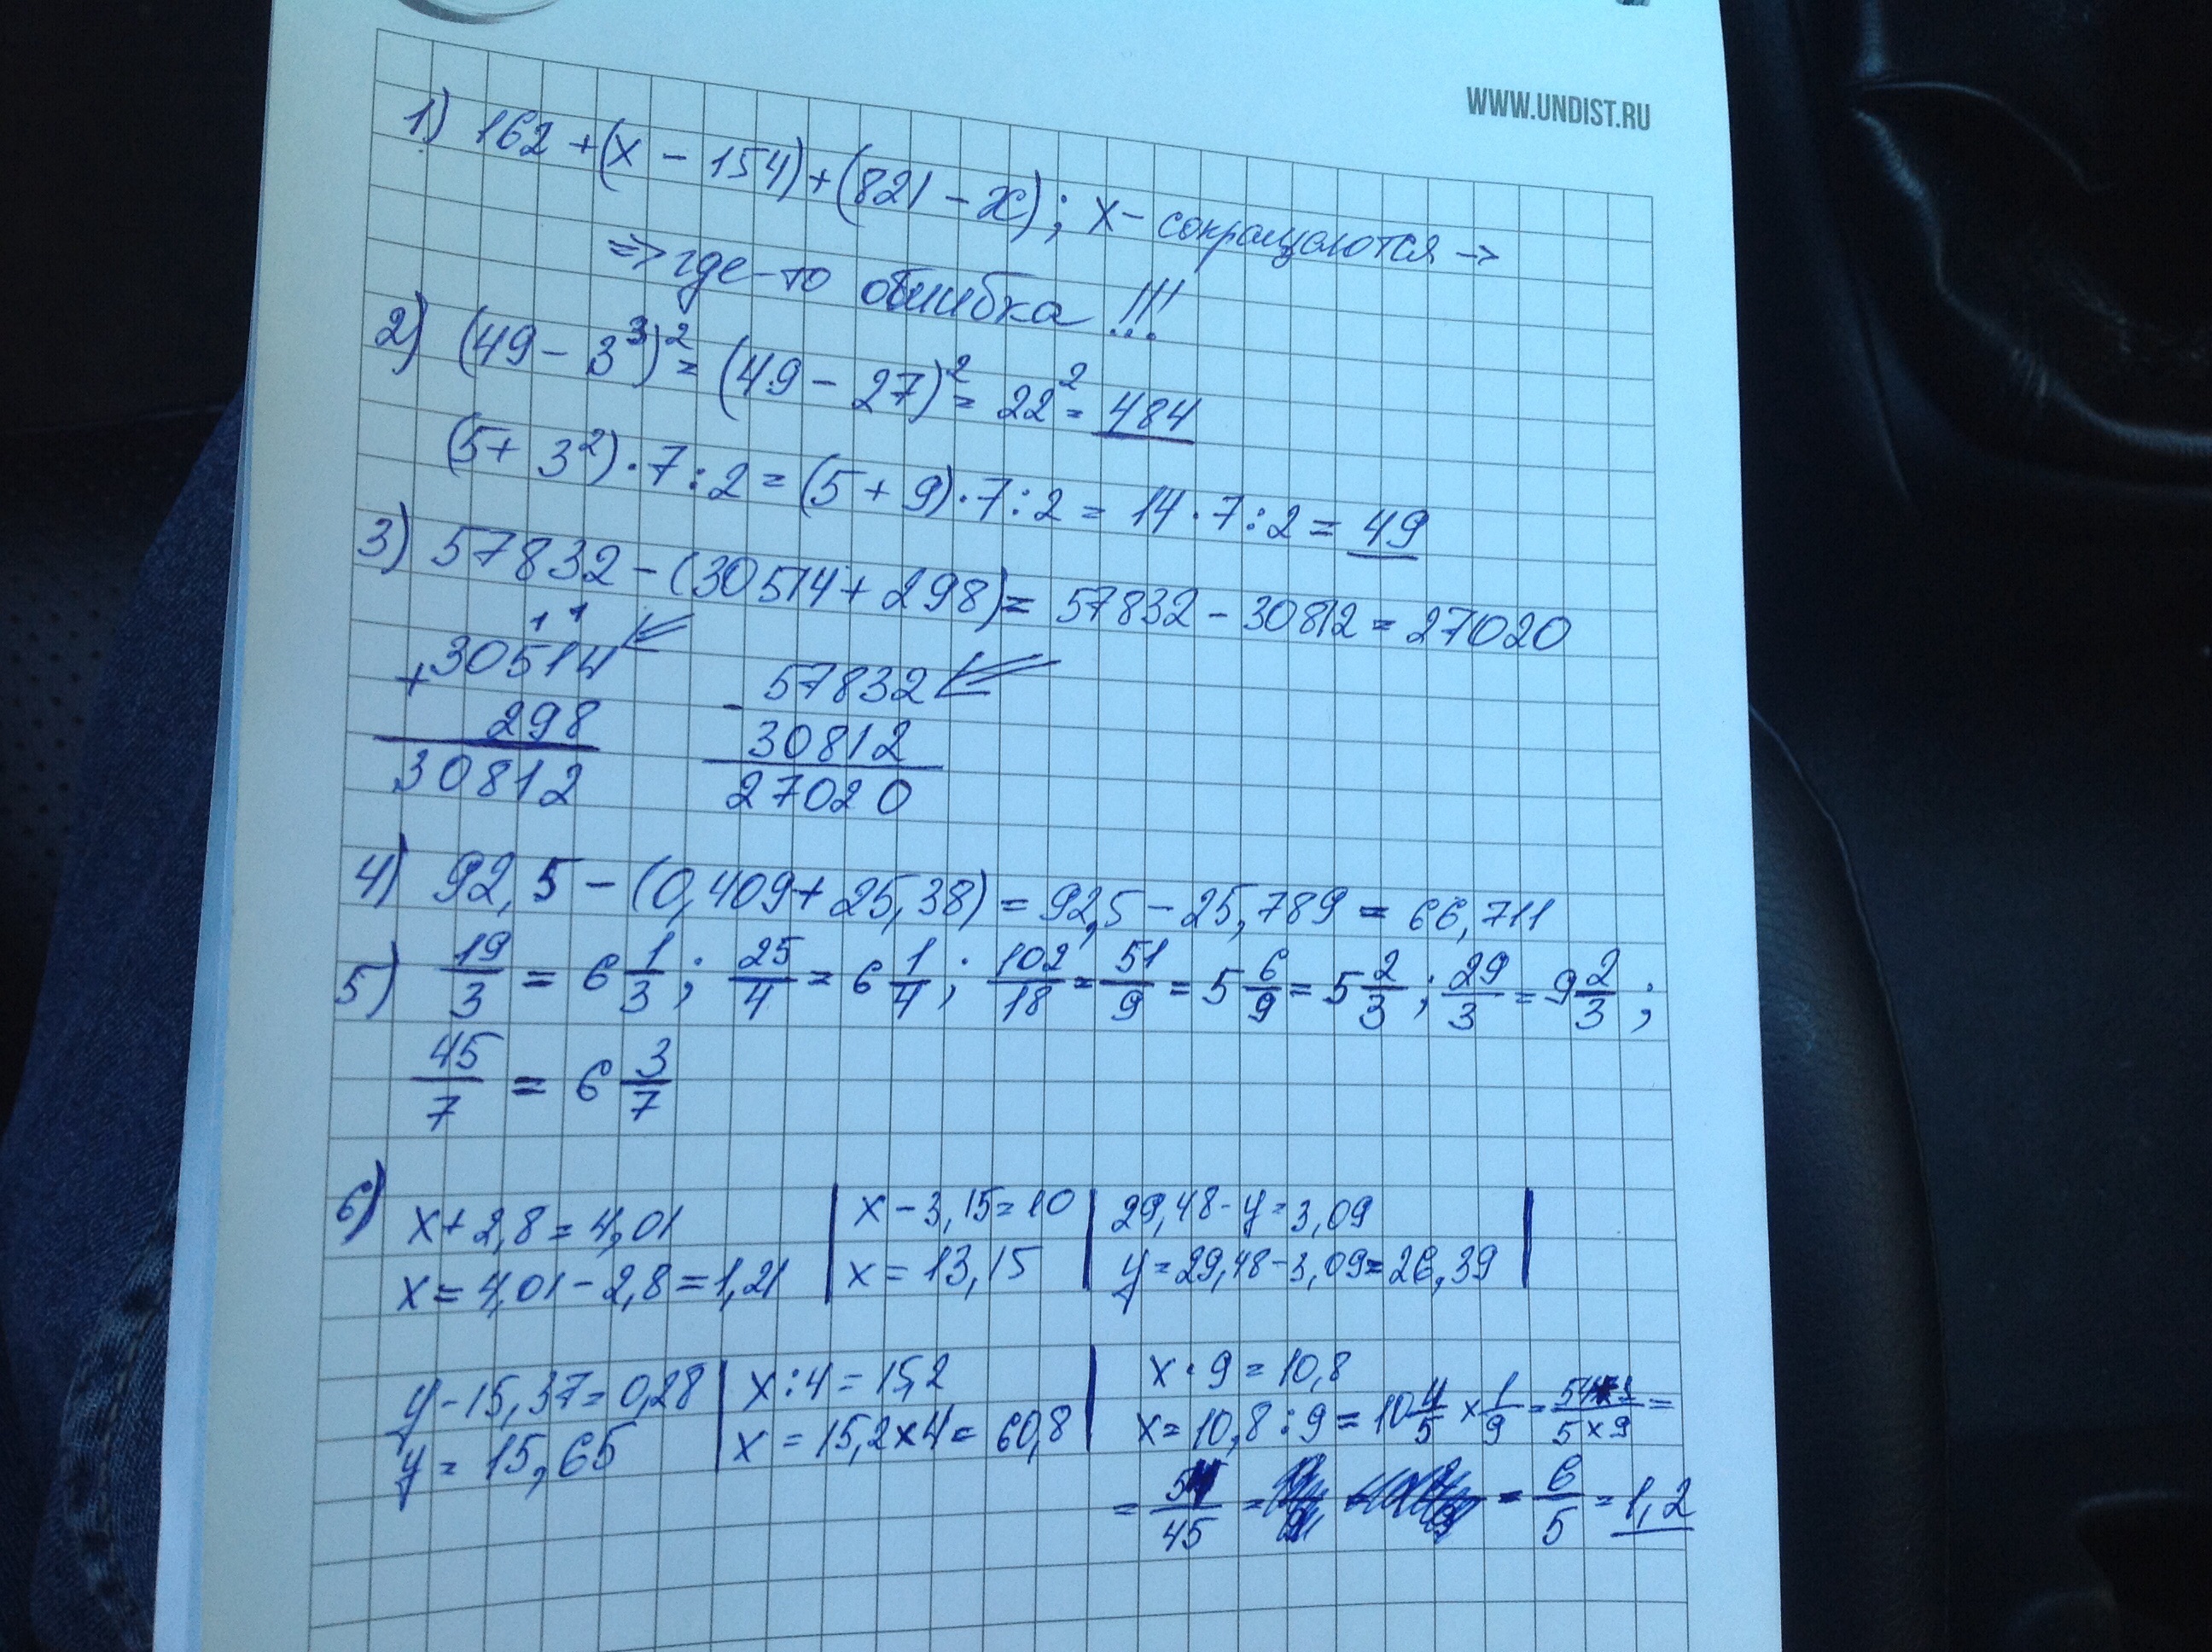 WWW.UNDIST.RU
1) 162 + (x - 154) + (821 - x); x - сокращаются ->
=> где-то ошибка !!!
2) (49 - 3³)² = (49 - 27)² = 22² = 484
(5 + 3²) · 7 : 2 = (5 + 9) · 7 : 2 = 14 · 7 : 2 = 49
3) 57832 - (30514 + 298) = 57832 - 30812 = 27020
1 1
+ 30514
298
30812
- 57832
30812
27020
4) 92,5 - (0,409 + 25,38) = 92,5 - 25,789 = 66,711
5) 19/3 = 6 1/3 ; 25/4 = 6 1/4 ; 102/18 = 51/9 = 5 6/9 = 5 2/3 ; 29/3 = 9 2/3 ;
45/7 = 6 3/7
6) x + 2,8 = 4,01
x = 4,01 - 2,8 = 1,21
x - 3,15 = 10
x = 13,15
29,48 - y = 3,09
y = 29,48 - 3,09 = 26,39
y - 15,37 = 0,28
y = 15,65
x : 4 = 15,2
x = 15,2 × 4 = 60,8
x · 9 = 10,8
x = 10,8 : 9 = 10 4/5 × 1/9 = 54×1/5×9 =
= 54/45 = = 6/5 = 1,2